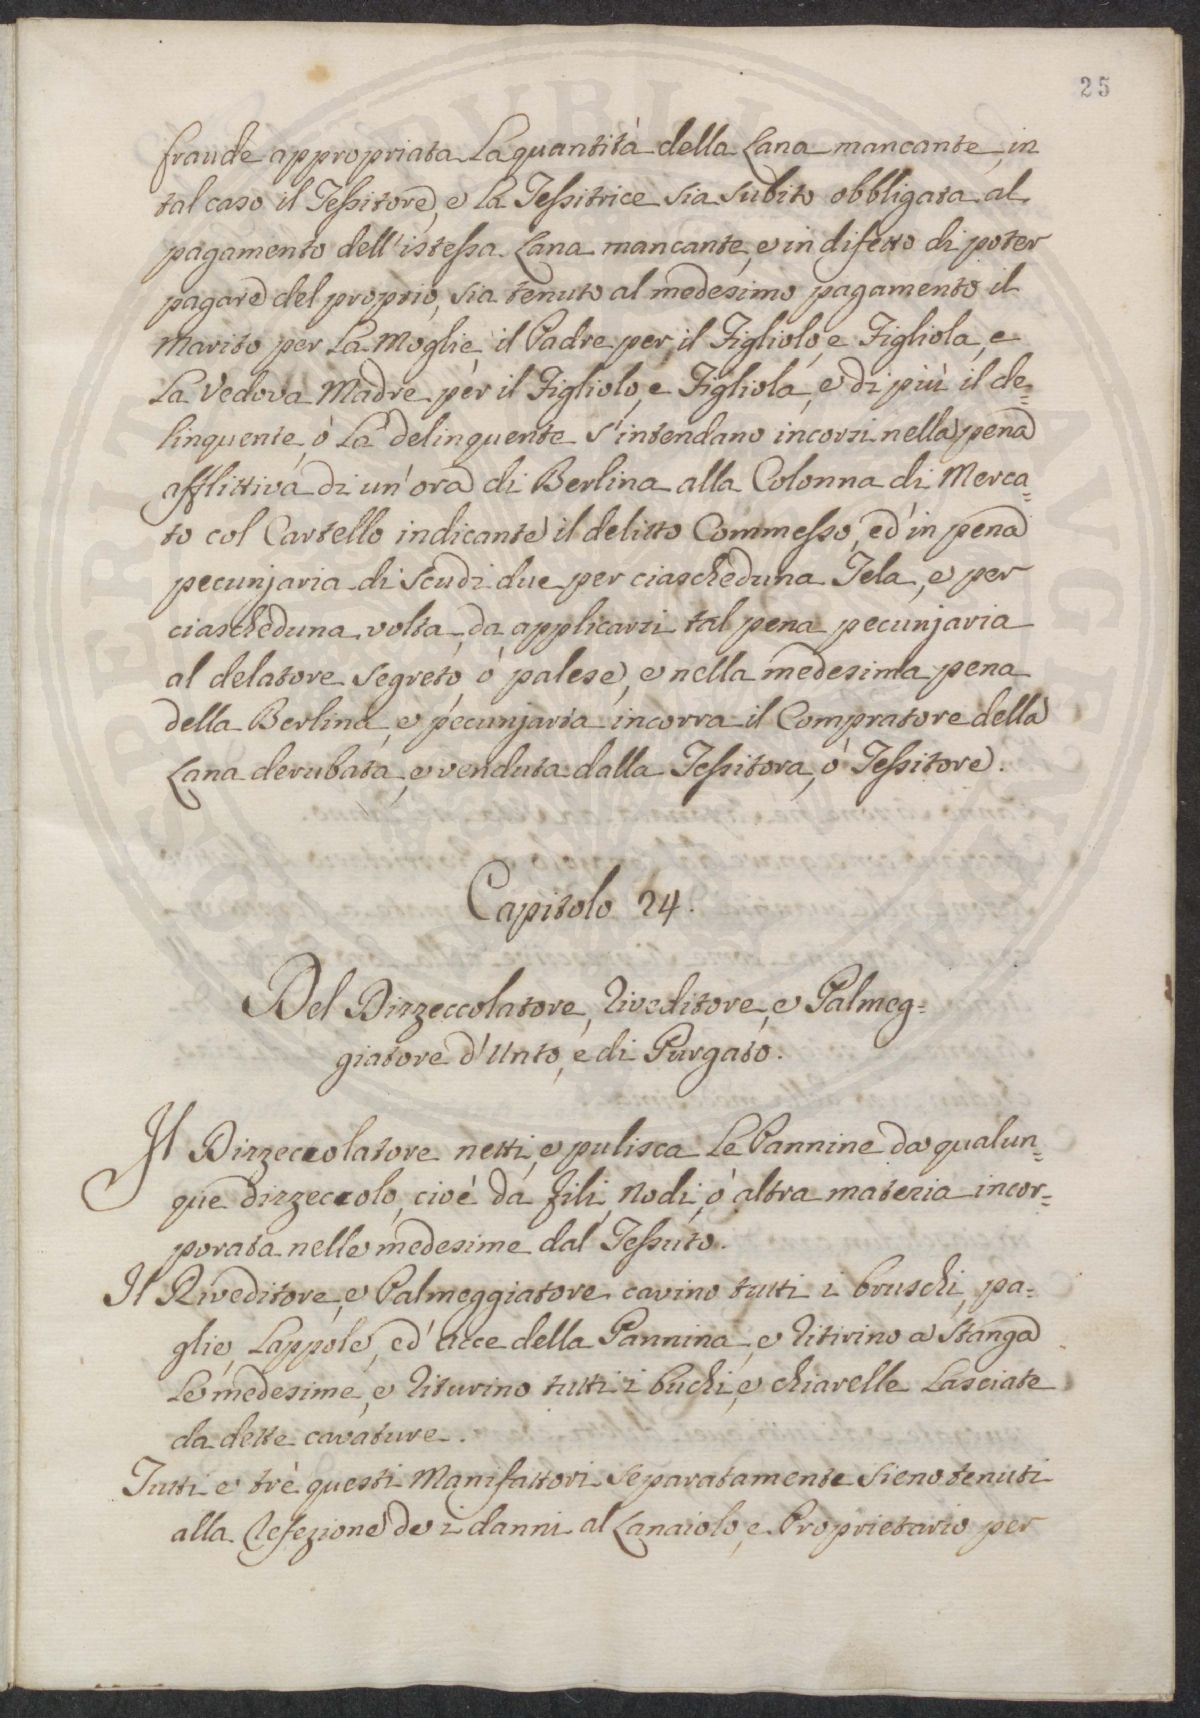 25
fraude appropriata La quantità della Lana mancante, in
tal caso il Tessitore, e La Tessitrice sia subito obbligata al
pagamento dell'istessa Lana mancante, e in difetto di poter
pagare del proprio, sia tenuto al medesimo pagamento il
Marito per La Moglie, il Padre per il Figliolo, e Figliola, e
La Vedova Madre per il Figliolo, e Figliola, e di più il de=
linquente, ò La delinquente s'intendano incorsi nella pena
afflittiva di un'ora di Berlina alla Colonna di Merca=
to col Cartello indicante il delitto Commesso, ed in pena
pecunjaria di Scudi due per ciascheduna Tela, e per
ciascheduna volta da applicarsi tal pena pecunjaria
al delatore segreto, ò palese, e nella medesima pena
della Berlina, e pecunjaria incorra il Compratore della
Lana derubata, e venduta dalla Tessitora, ò Tessitore.
Capitolo 24.
Del Dizzeccolatore, Riveditore, e Palmeg=
giatore d'Unto, e di Purgato.
Il Dizzeccolatore netti, e pulisca Le Pannine da qualun=
que dizzeccolo, cioè da fili, nodi, ò altra materia incor=
porata nelle medesime dal Tessuto.
Il Riveditore, e Palmeggiatore cavino tutti i bruschi, pa=
glie, Lappole, ed acce della Pannina, e ritirino a Stanga
Le medesime, e riturino tutti i buchi, e chiarelle Lasciate
da dette cavature.
Tutti e trè questi Manifattori separatamente sieno tenuti
alla refezione de i danni al Lanaiolo, e Proprietario per